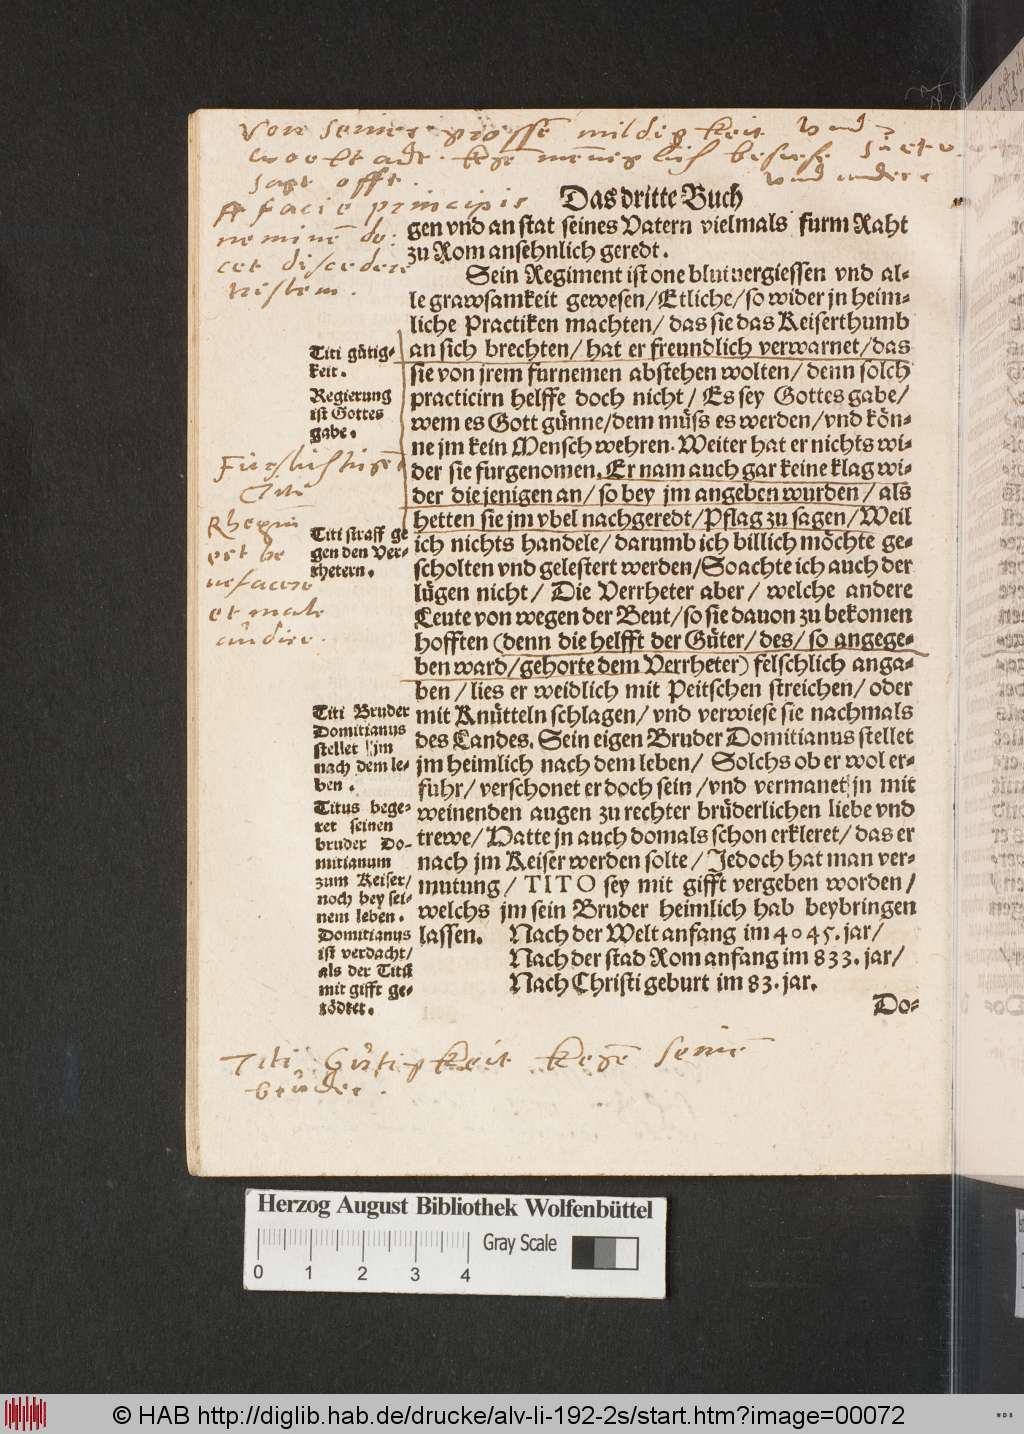 Von seiner grossē mildigkeit vnd
woltadt kegē mēniglich besiehe Suetō.
vnd andere
sagt offt.
A facie principis
neminē de-
cet discedere
tristem.
Das dritte Buch
gen vnd an stat seines Vatern vielmals furm Raht
zu Rom ansehnlich geredt.
Sein Regiment ist one blutuergiessen vnd al-
le grawsamkeit gewesen/Etliche/so wider jn heim-
liche Practiken machten/das sie das Keiserthumb
an sich brechten/hat er freundlich verwarnet/das
sie von jrem furnemen abstehen wolten/denn solch
practicirn helffe doch nicht/Es sey Gottes gabe/
wem es Gott günne/dem müss es werden/vnd kön-
ne jm kein Mensch wehren. Weiter hat er nichts wi-
der sie furgenomen. Er nam auch gar keine klag wi-
der die jenigen an/so bey jm angeben wurden/als
hetten sie jm vbel nachgeredt/Pflag zu sagen/Weil
ich nichts handele/darumb ich billich möchte ge-
scholten vnd gelestert werden/So achte ich auch der
lügen nicht/Die Verrheter aber/welche andere
Leute von wegen der Beut/so sie dauon zu bekomen
hofften (denn die helfft der Güter/des/so angege-
ben ward/gehorte dem Verrheter) felschlich anga-
ben/lies er weidlich mit Peitschen streichen/oder
mit Knütteln schlagen/vnd verwiese sie nachmals
des Landes. Sein eigen Bruder Domitianus stellet
jm heimlich nach dem leben/Solchs ob er wol er-
fuhr/verschonet er doch sein/vnd vermanet jn mit
weinenden augen zu rechter brüderlichen liebe vnd
trewe/Hatte jn auch domals schon erkleret/das er
nach jm Keiser werden solte/Jedoch hat man ver-
mutung/TITO sey mit gifft vergeben worden/
welchs jm sein Bruder heimlich hab beybringen
lassen. Nach der Welt anfang im 4045. jar/
Nach der stad Rom anfang im 833. jar/
Nach Christi geburt im 83. jar.
Do-
Titi gütig-
keit.
Regierung
ist Gottes
gabe.
Titi
Rhegiū
est be
nefacere
et male
audire.
Titi straff ge
gen den Ver-
rhetern.
Titi Bruder
Domitianus
stellet jm
nach dem le-
ben.
Titus bege-
ret seinen
bruder Do-
mitianum
zum Keiser/
noch bey sei-
nem leben.
Domitianus
ist verdacht/
als der Titū
mit gifft ge-
tödtet.
Titi Gütigkeit kegē seinē
bruder.
Herzog August Bibliothek Wolfenbüttel
Gray Scale
0 1 2 3 4
© HAB http://diglib.hab.de/drucke/alv-li-192-2s/start.htm?image=00072